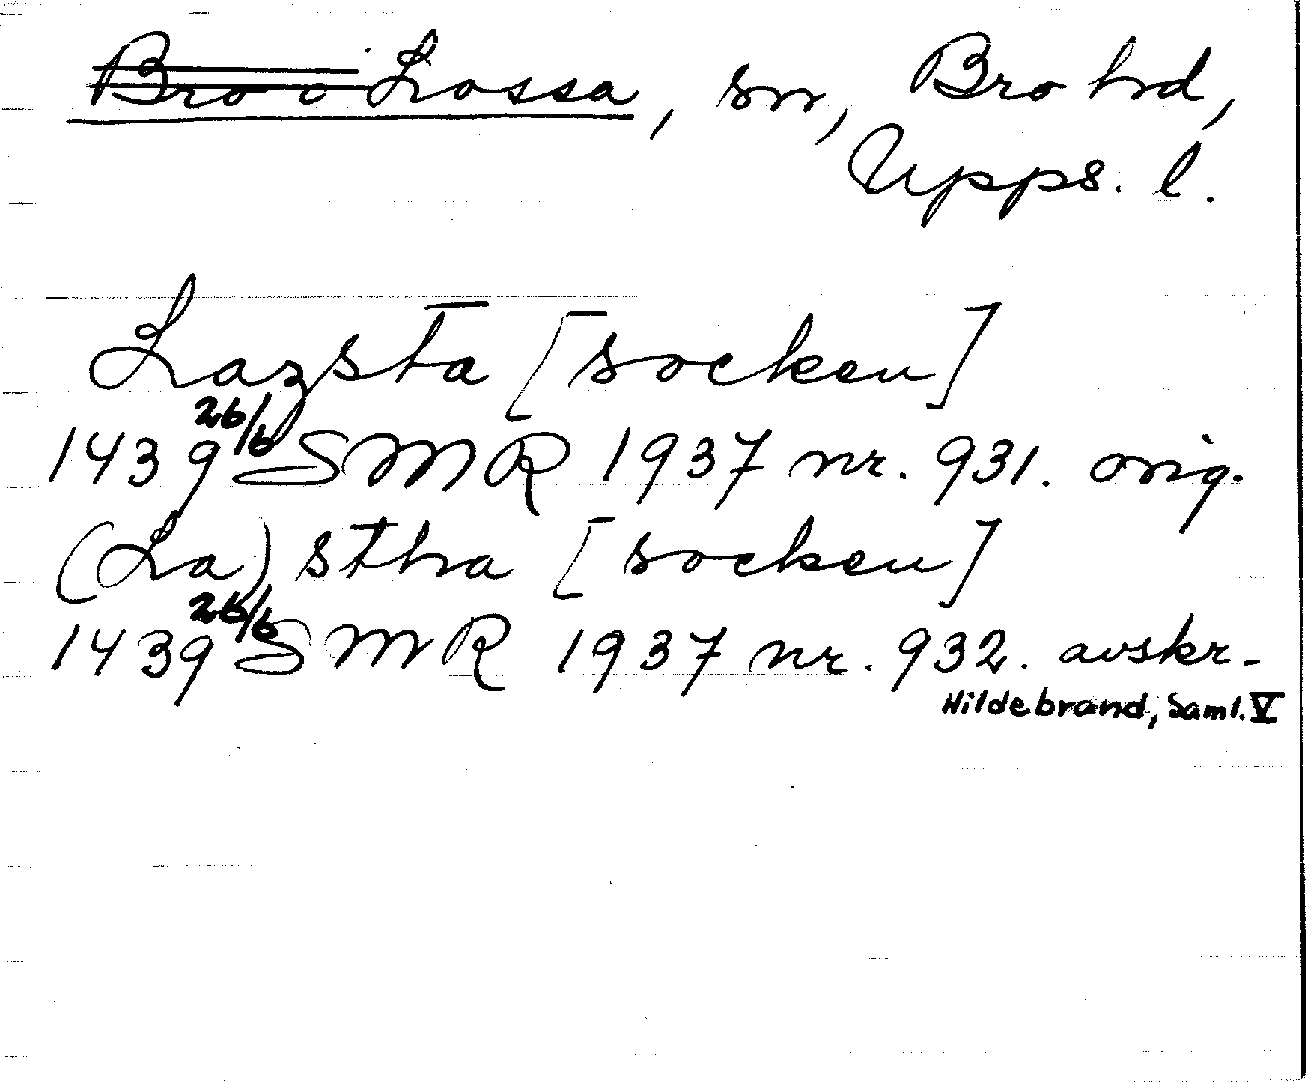 Bro o Lossa, sn, Bro hd,
Upps. l.
Lazsta [socken]
1439 26/6 SMR 1937 nr. 931. orig.
(La)stha [socken]
1439 26/6 SMR 1937 nr. 932. avskr.
Hildebrand, Saml. V